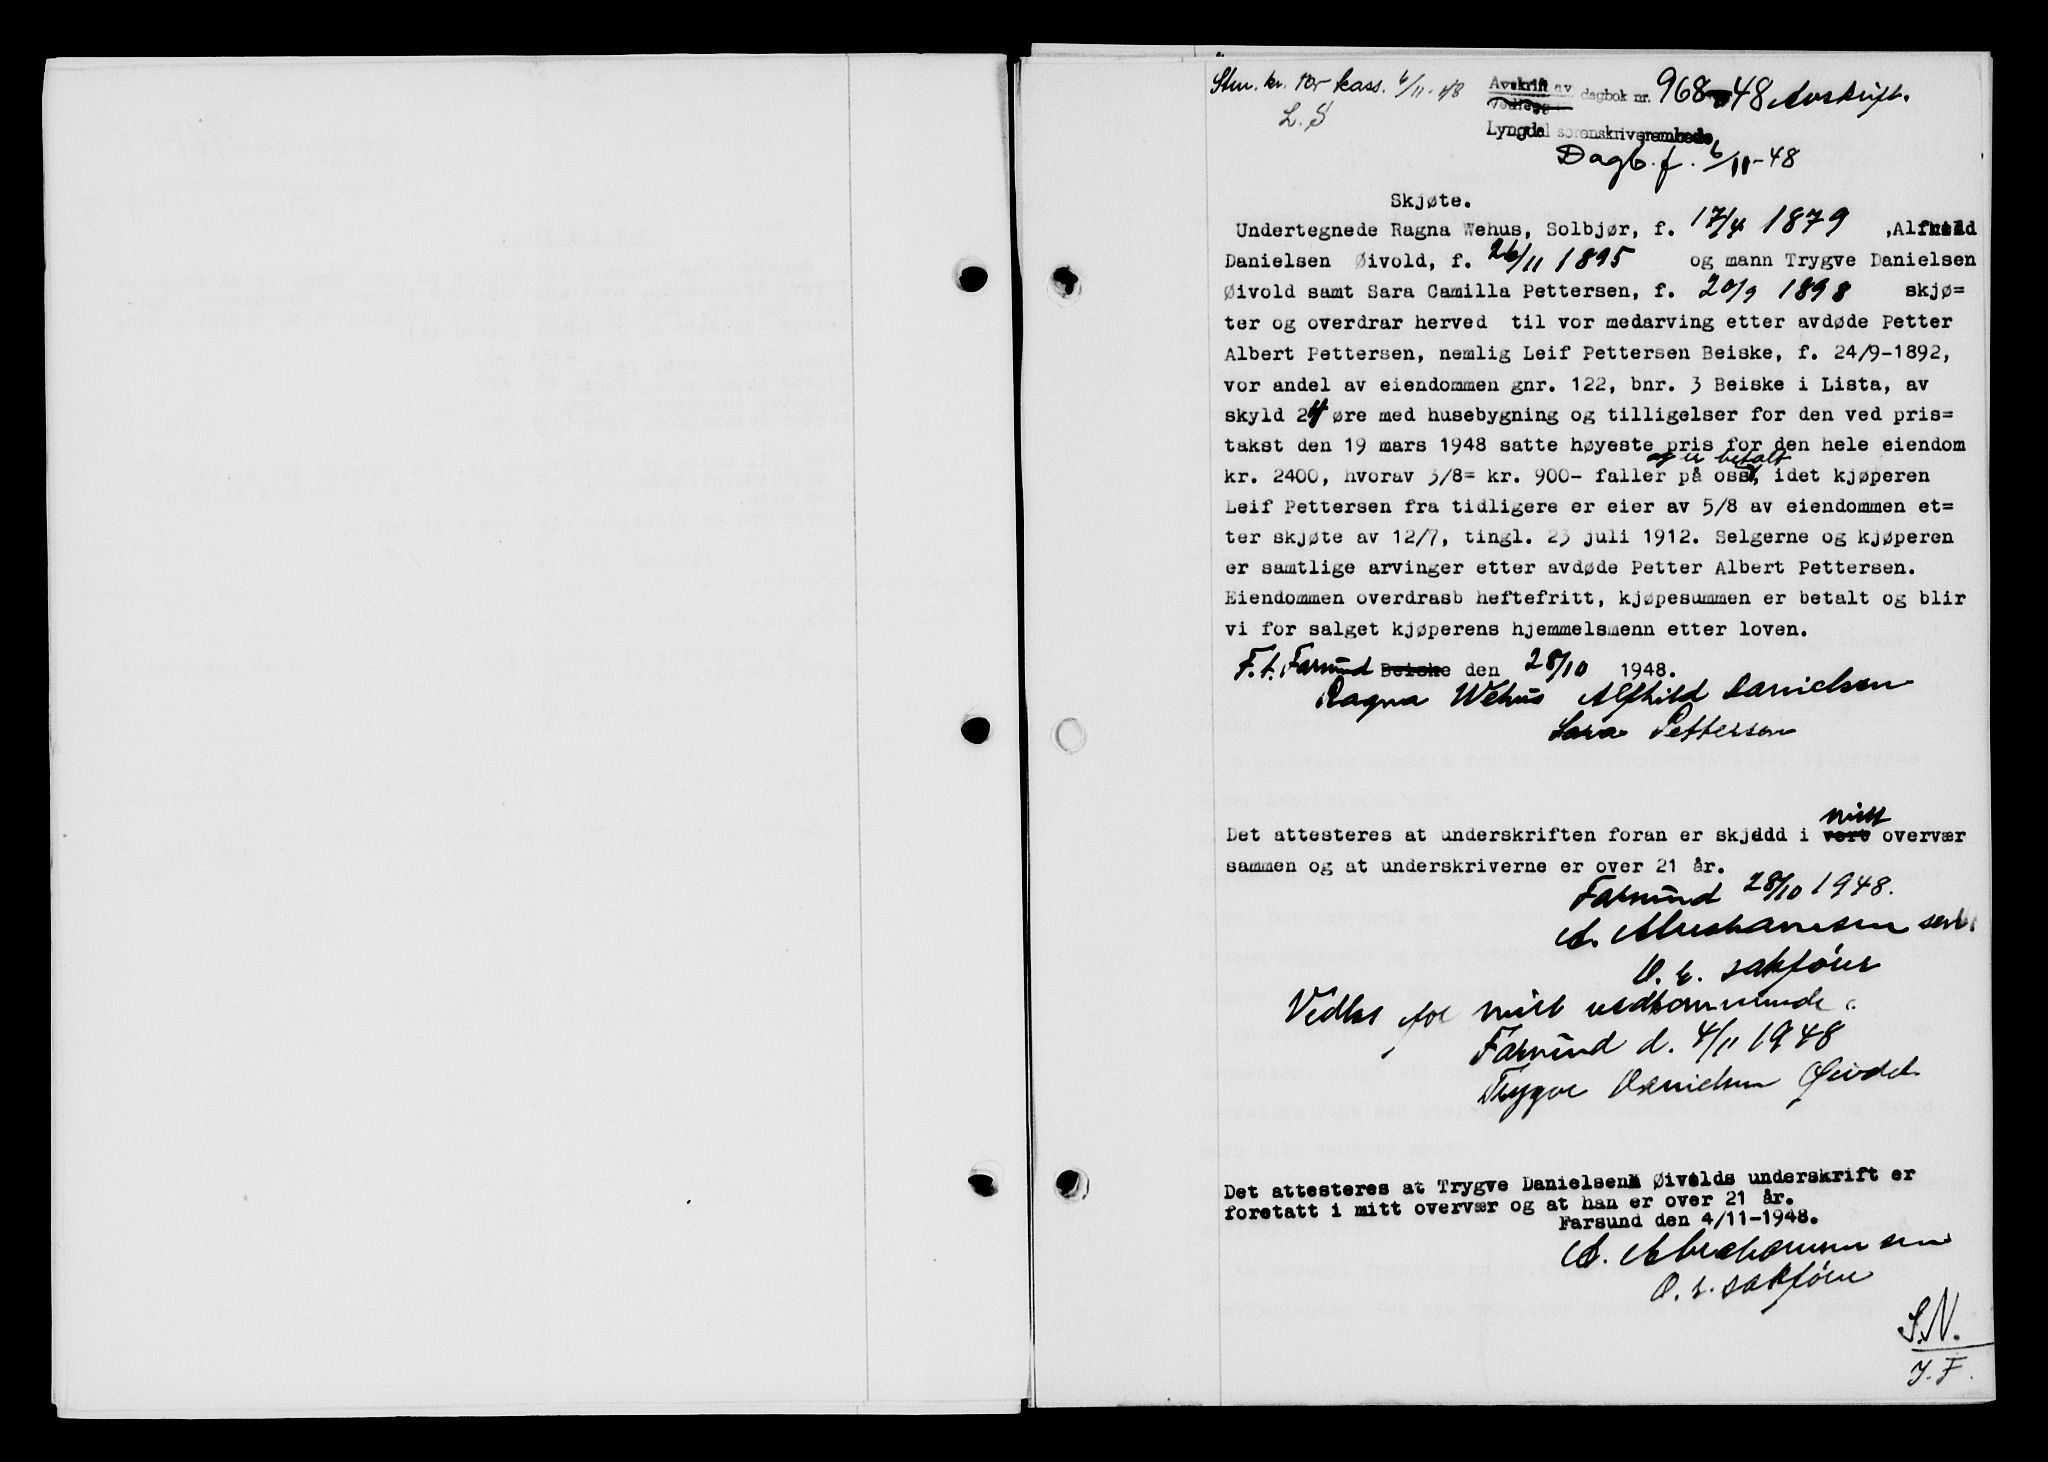 Stm. kr. 10r kass. 6/11-48
L.S
Avskrift av dagbok nr. 968-48 Avskrift.
Vedlegg
Lyngdal sorenskriverembede
Dagb.f. 6/11-48
Skjøte.
Undertegnede Ragna Wehus, Solbjør, f. 17/4 1879 ,Alfhild
Danielsen Øivold, f. 26/11 1895 og mann Trygve Danielsen
Øivold samt Sara Camilla Pettersen, f. 20/9 1898 skjø=
ter og overdrar herved til vor medarving etter avdøde Petter
Albert Pettersen, nemlig Leif Pettersen Beiske, f. 24/9-1892,
vor andel av eiendommen gnr. 122, bnr. 3 Beiske i Lista, av
skyld 24 øre med husebygning og tilligelser for den ved pris=
takst den 19 mars 1948 satte høyeste pris for den hele eiendom
og er betalt
kr. 2400, hvorav 3/8= kr. 900- faller på oss, idet kjøperen
Leif Pettersen fra tidligere er eier av 5/8 av eiendommen et=
ter skjøte av 12/7, tingl. 23 juli 1912. Selgerne og kjøperen
er samtlige arvinger etter avdøde Petter Albert Pettersen.
Eiendommen overdrasb heftefritt, kjøpesummen er betalt og blir
vi for salget kjøperens hjemmelsmenn etter loven.
F.t. Farsund Beiske den 28/10 1948.
Ragna Wehus Alfhild Danielsen
Sara Pettersen
mitt
Det attesteres at underskriften foran er skjedd i vort overvær
sammen og at underskriverne er over 21 år.
Farsund 28/10 1948.
A. Abrahamsen sen.
O.r. sakfører
Vedtas for mitt vedkommende.
Farsund d. 4/11 1948
Trygve Danielsen Øivold
Det attesteres at Trygve Danielsen Øivolds underskrift er
foretatt i mitt overvær og at han er over 21 år.
Farsund den 4/11-1948.
A. Abrahamsen sen
O.r. sakfører
S.N.
J.F.